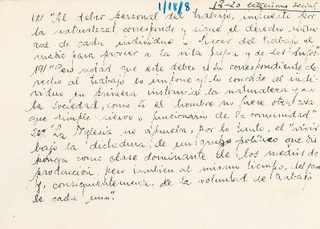 1/18/8
19-20 catecismo social
18) "Al deber personal del trabajo, impuesto por
la naturaleza, corresponde y sigue el derecho natu-
ral de cada individuo a hacer del trabajo el
medio para proveer a la vida propia y de los hijos
19) "Pero notad que este deber y su correspondiente de-
recho al trabajo lo impone y lo concede al indi-
viduo en primera instancia la naturaleza y no
la sociedad, como si el hombre no fuese otra cosa
que simple siervo o funcionario de la comunidad"
20) "La Iglesia no aprueba, por lo tanto, el "vivir
bajo la dictadura de un grupo político que dis-
ponga como clase dominante de los medios de
producción, pero también al mismo tiempo, del pan
y, consiguientemente, de la voluntad de trabajo
de cada uno".